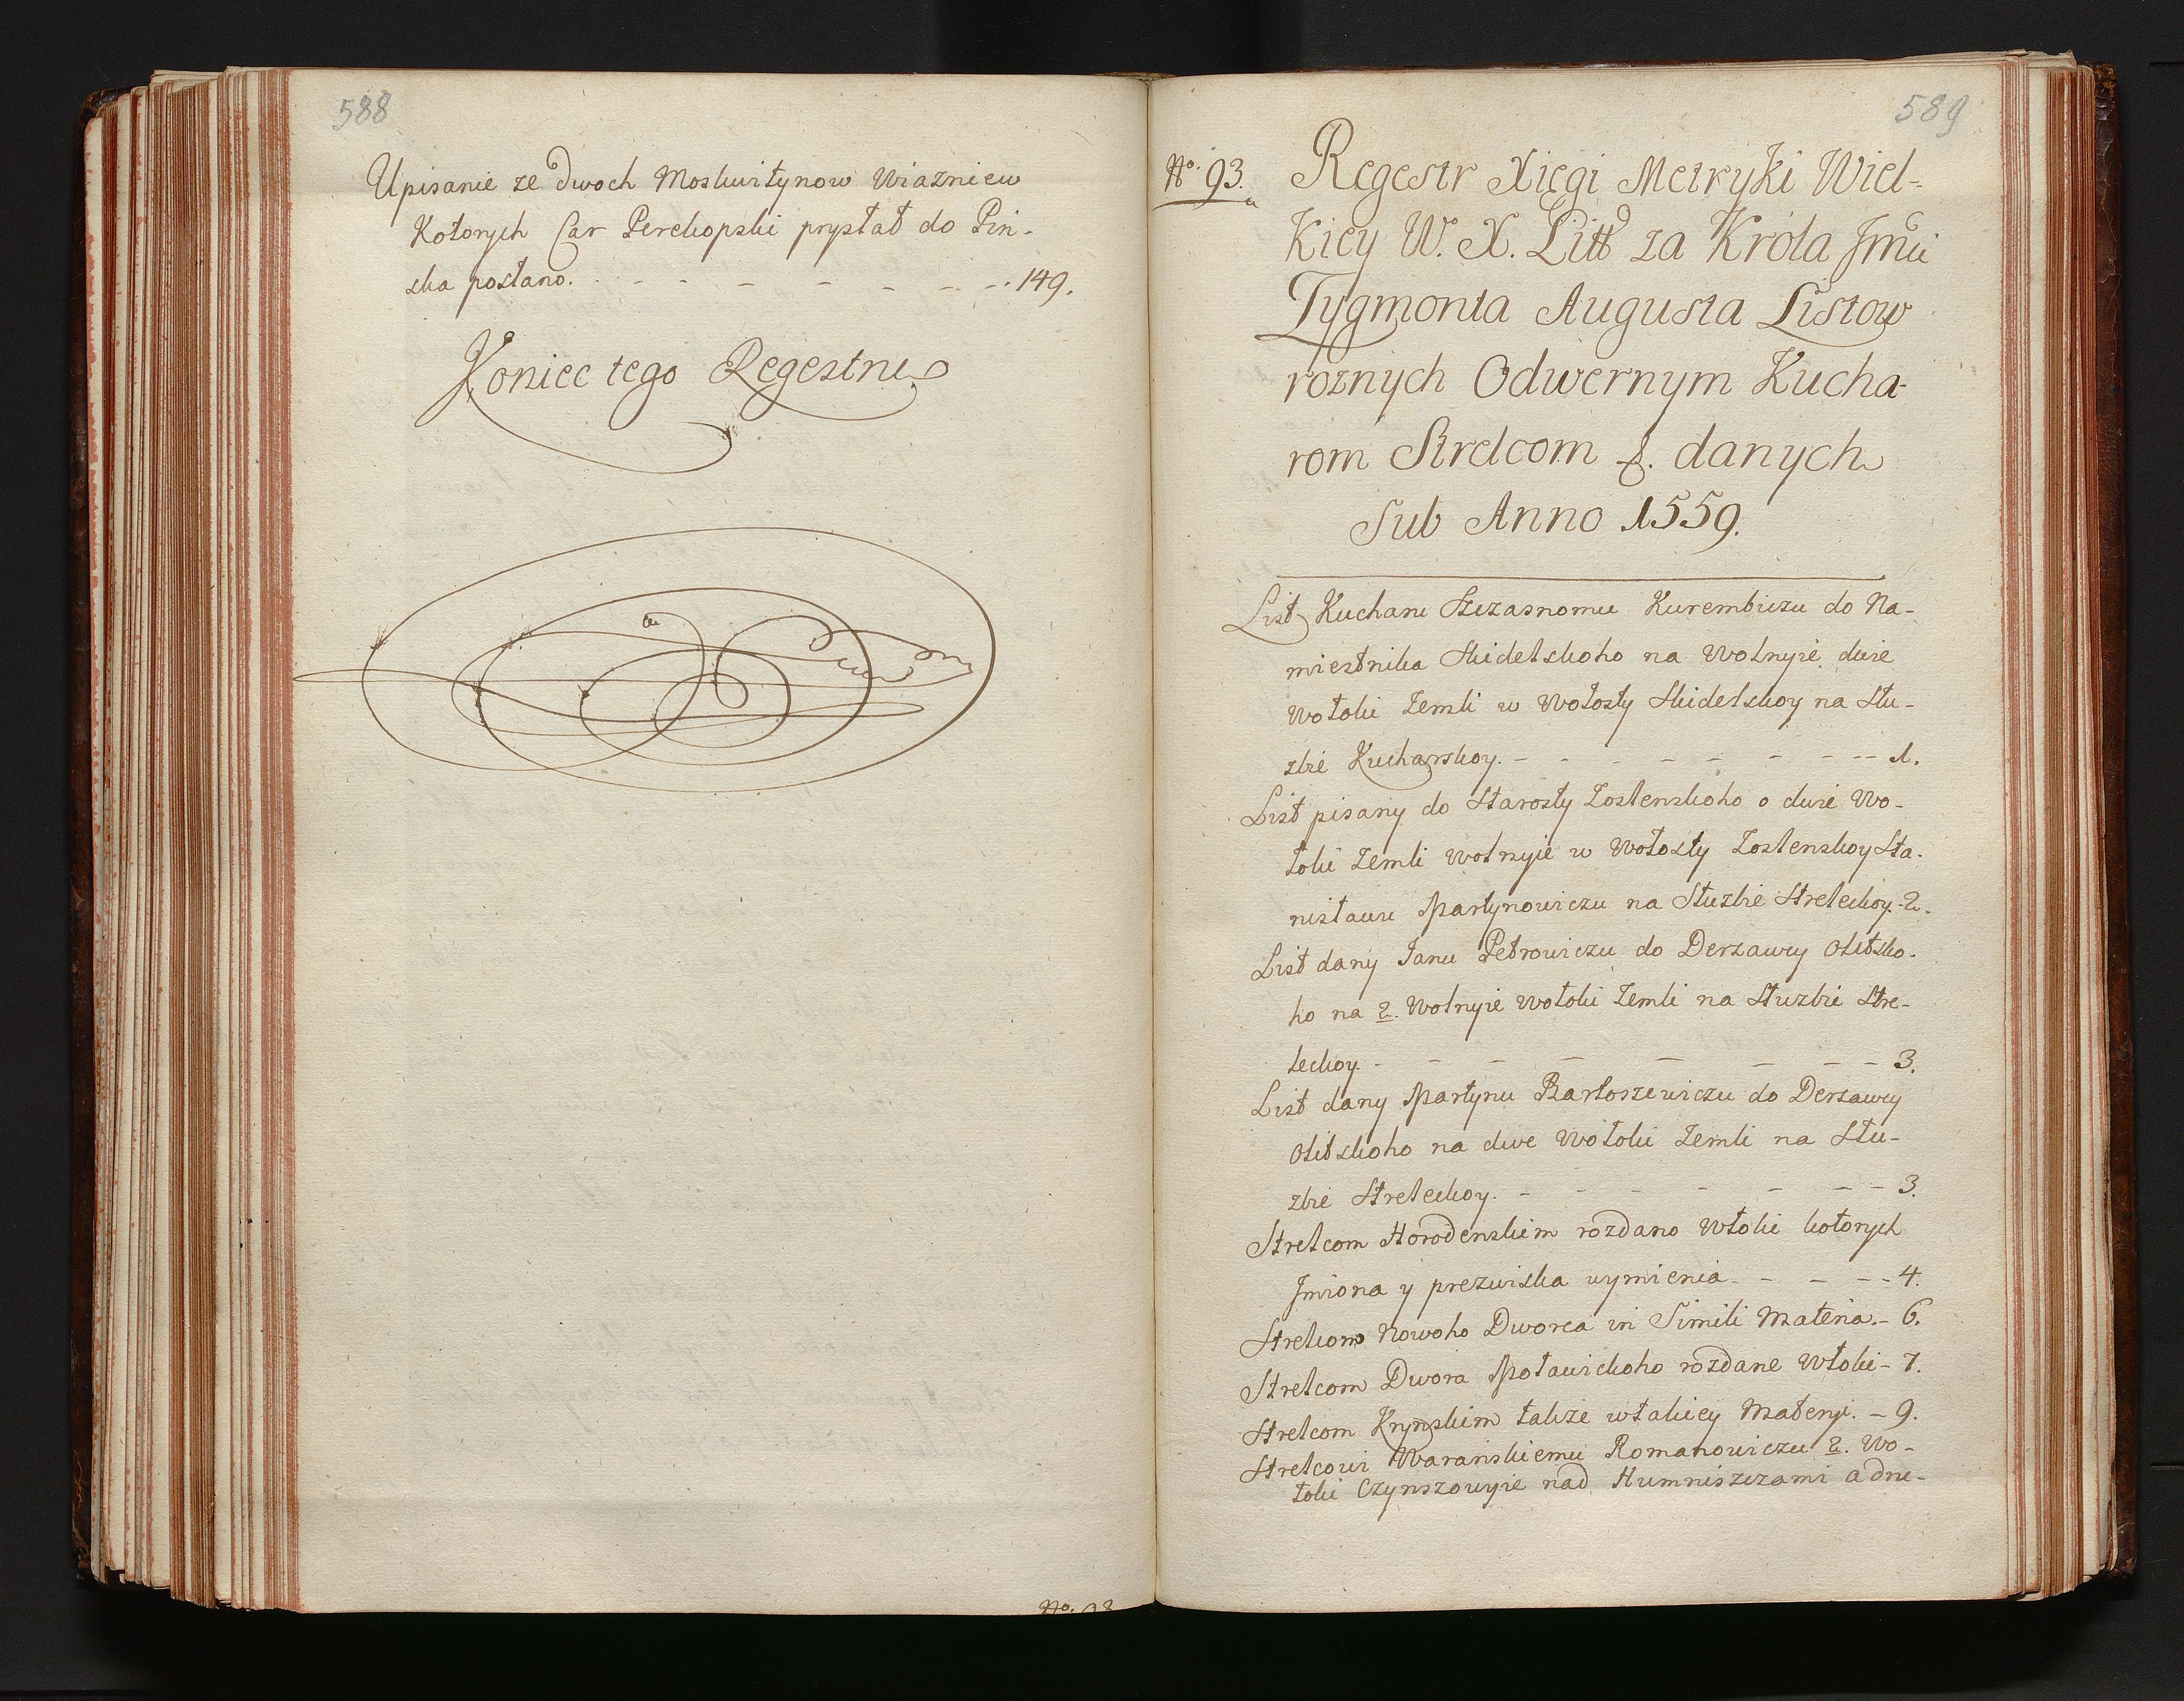 588
Upisanie ze dwoch Moskwitynow Wiazniew
Kotorych Car Perekopski prysłał do Pin-
ska posłano. . - - - - - - - . 149.
Koniec tego Regestru
No. 93
589
No. 93.
Regestr Xięgi Metryki Wiel=
Kiey W. X. Litt za Króla Jmci
Zygmonta Augusta Listow
roznych Odwernym Kucha-
rom Strelcom &. danych
Sub Anno 1559.
List Kucharu Szczasnomu Kurembiczu do Na-
miestnika Skidelskoho na Wolnyie dwie
Wołoki Zemli w Wołosty Skidelskoy na Słu-
zbie Kucharskoy. - - - - - - - - 1.
List pisany do Starosty Zoslenskoho o dwie Wo-
łoki Zemli wolnyie w Wołosty Zoslenskoy Sta-
nisławu Martynowiczu na Słuzbie Streleckoy - 2.
List dany Janu Petrowiczu do Derzawcy Olitsko-
ho na 2. Wolnyie Wołoki Zemli na Słuzbie Stre-
leckoy. - - - - - - - 3.
List dany Martynu Bartoszewiczu do Derzawcy
Olitskoho na dwe Wołoki Zemli na Słu-
zbie Streleckoy. - - - - - - - 3.
Strelcom Horodenskim rozdano Włoki kotorych
Jmiona y prezwiska wymienia - - - - - 4.
Strelcom Nowoho Dworca in Simili Materia. - 6.
Strelcom Dwora Moławickoho rozdane Włoki - 7.
Strelcom Krynskim takze w takiey Materyi. - 9.
Strelcowi Waranskiemu Romanowiczu 2. Wo-
łoki Czynszowyie nad Humniszczami adne-